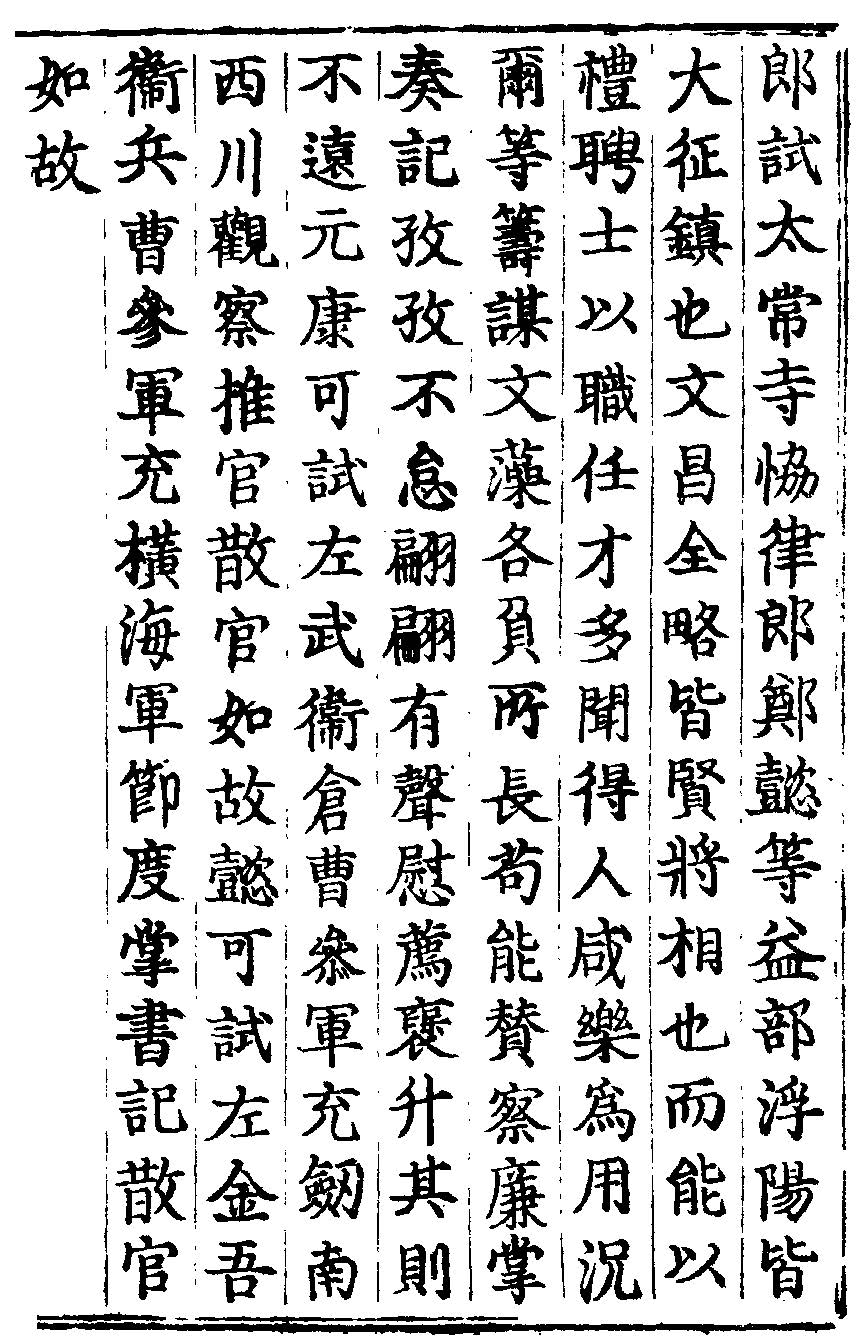 郎試太常寺恊律郎鄭懿等益部浮陽皆
大征鎮也文昌全略皆賢將相也而能以
禮聘士以職任才多聞得人咸樂爲用况
爾等籌謀文藻各負所長苟能賛察廉掌
奏記孜孜不怠翩翩有聲慰薦襃升其則
不遠元康可試左武衞倉曹叅軍充劒南
西川觀察推官散官如故懿可試左金吾
衞兵曹參軍充橫海軍節度掌書記散官
如故